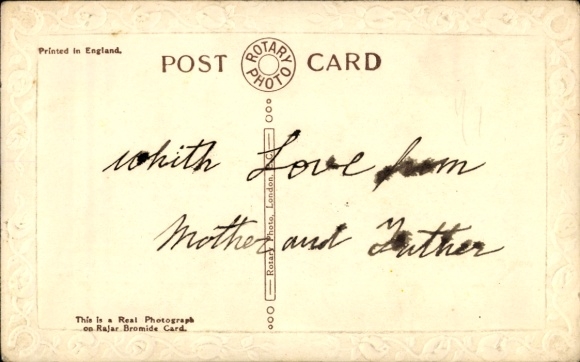 Printed in England.
POST CARD
ROTARY PHOTO
whith Love from
Mother and Father
Rotary Photo, London, E.C.
This is a Real Photograph
on Rajar Bromide Card.